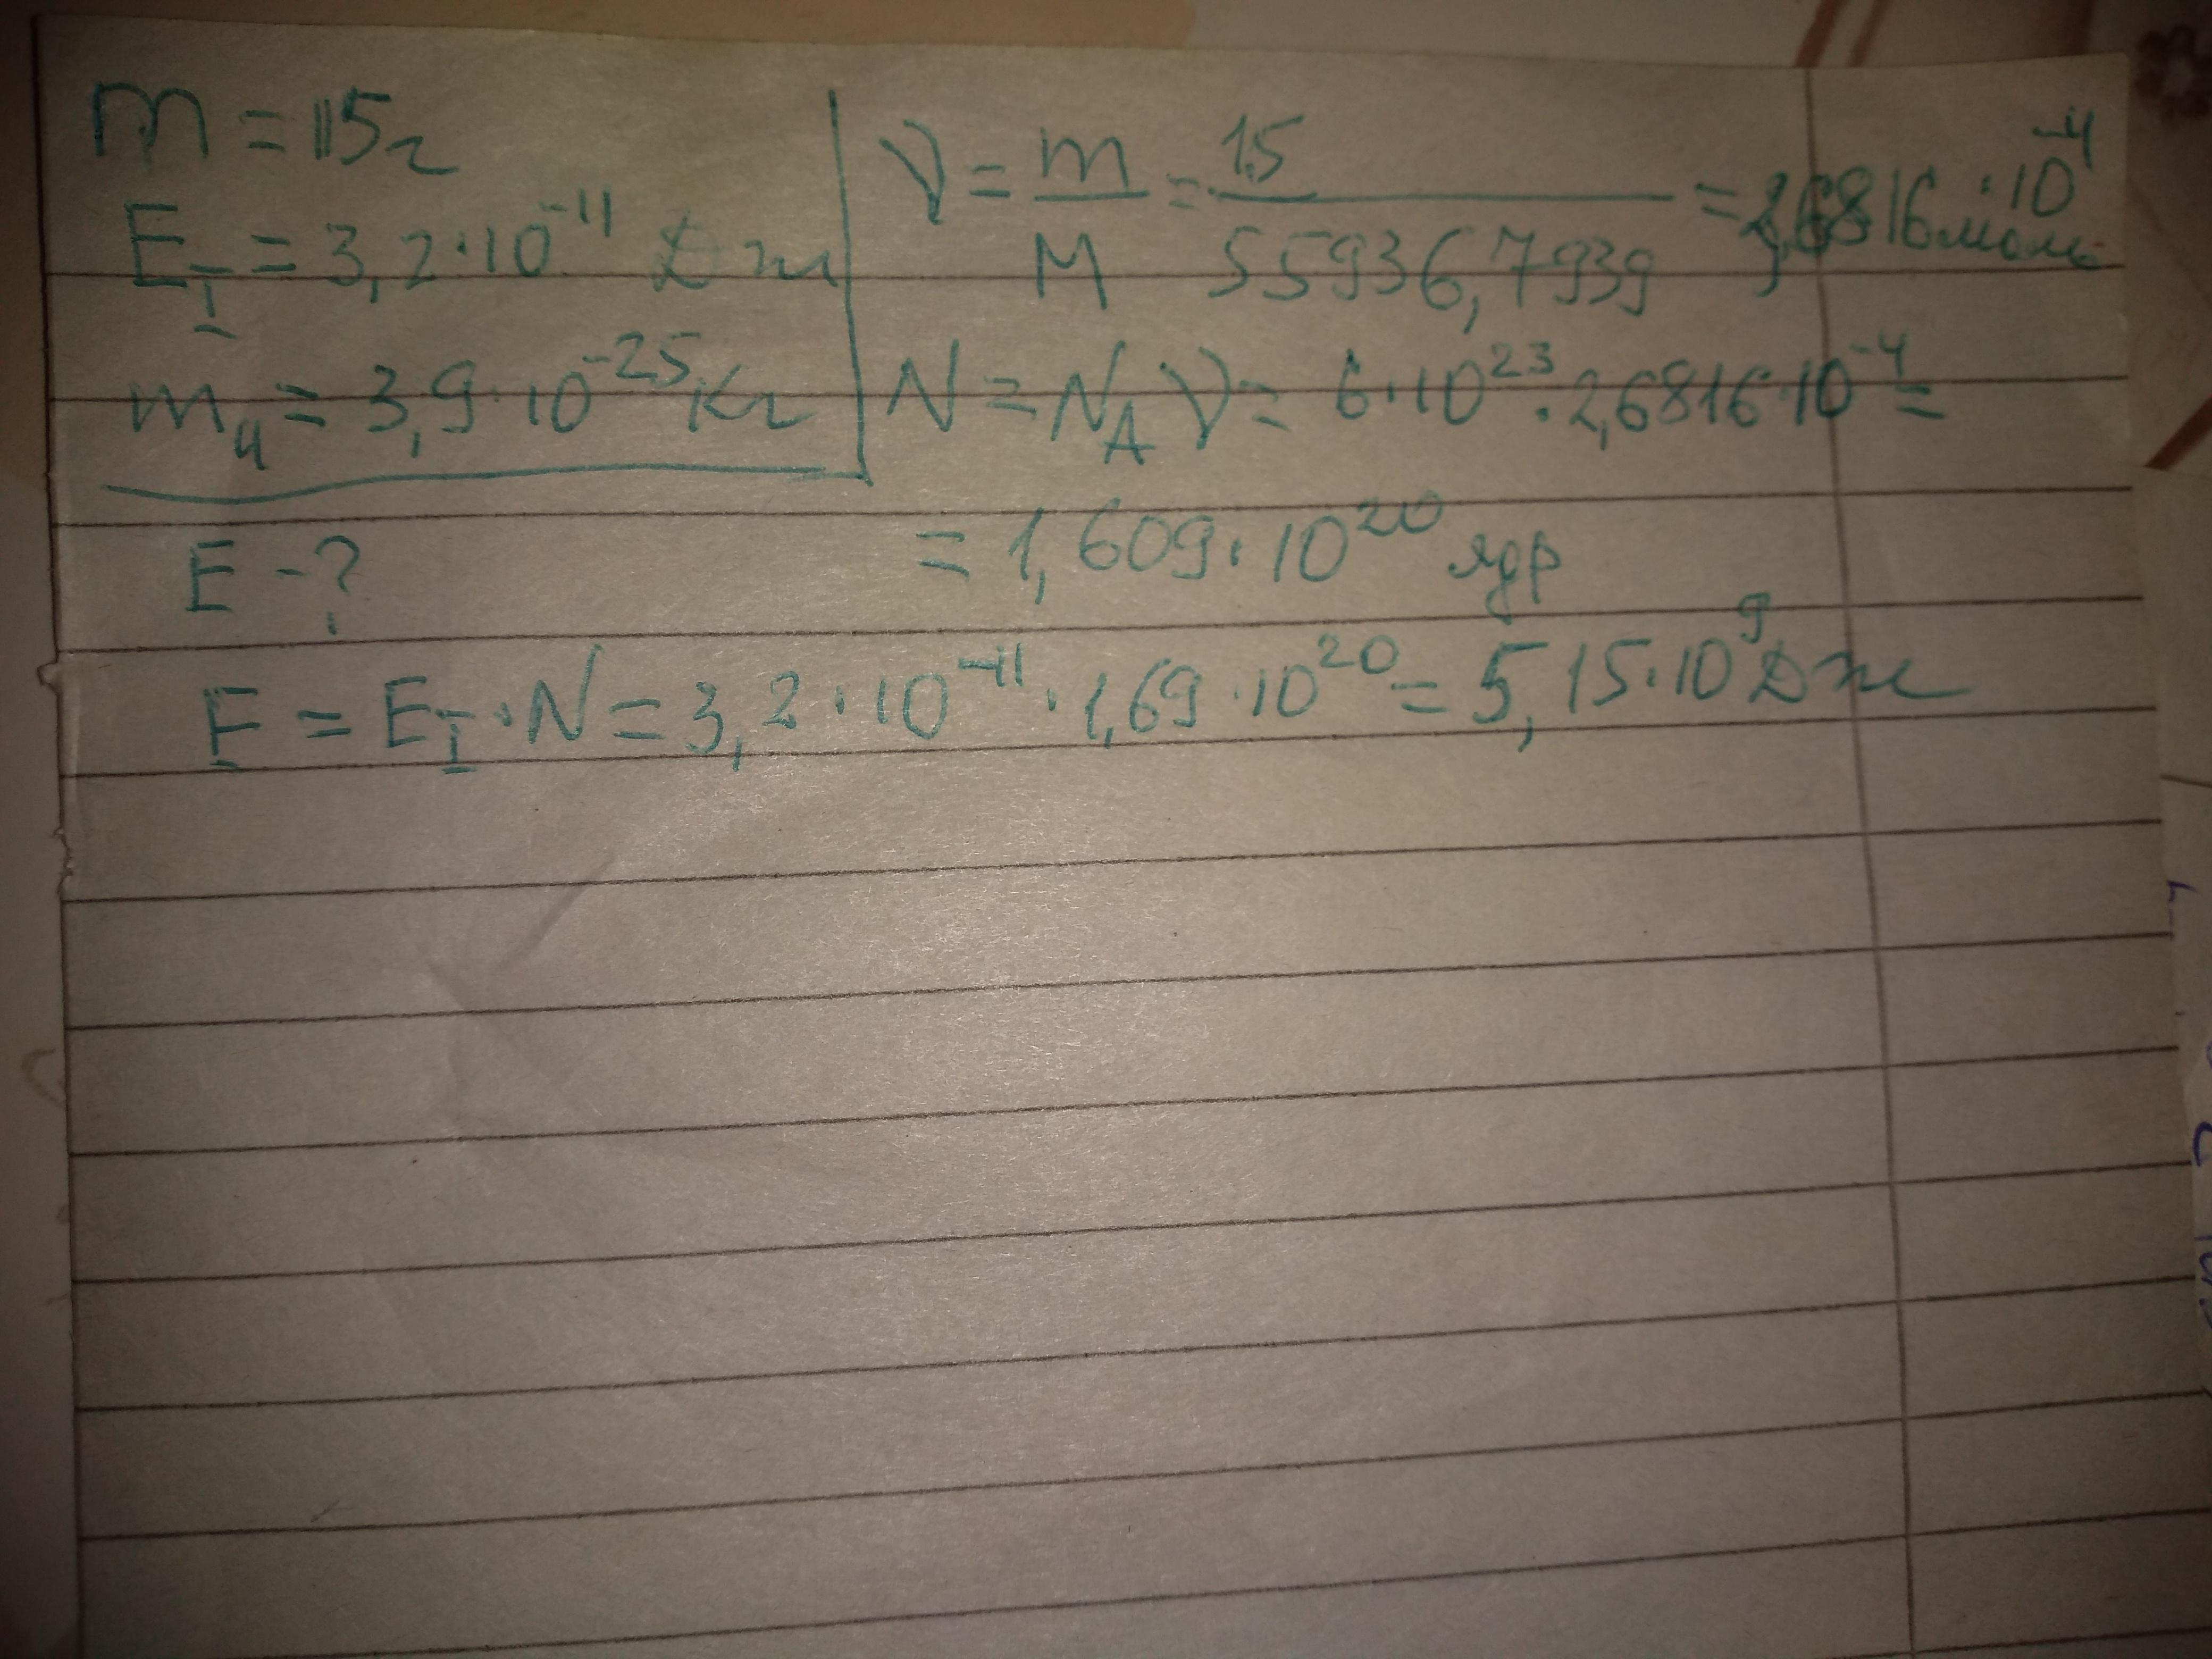 m = 15г
E_I = 3,2·10^-11 Дж
m_ч = 3,9·10^-25 Кг
E - ?
ν = m/M = 15/55936,7939 = 2,6816·10^-4 моль
N = N_A ν = 6·10^23·2,6816·10^-4 =
= 1,609·10^20 ядр
E = E_I·N = 3,2·10^-11·1,69·10^20 = 5,15·10^9 Дж